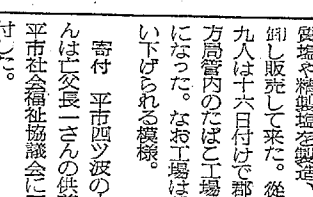 質塩や精製塩を製造、
卸し販売して来た。從
九人は十六日付けで郡
方局管内のたばこ工場
になった。なお工場は
い下げられる模様。
寄付　平市四ツ波の
んは亡父長一さんの供
平市社会福祉協議会に
付した。